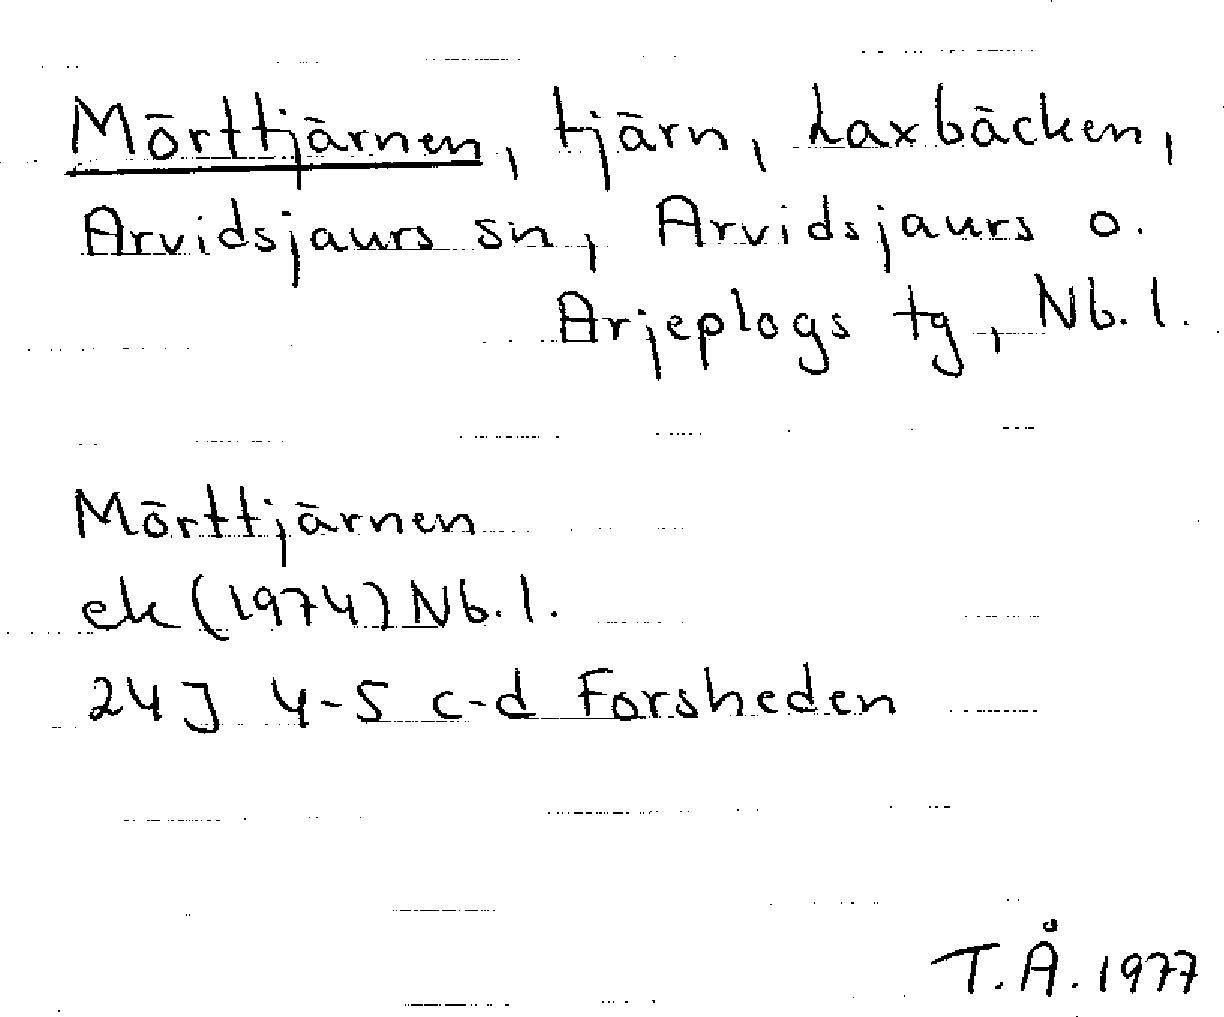 Mörttjärnen, tjärn, Laxbäcken,
Arvidsjaurs sn, Arvidsjaurs o.
Arjeplogs tg, Nb. l.
Mörttjärnen
ek (1974) Nb. l.
24 J 4-5 c-d Forsheden
T. Å. 1977